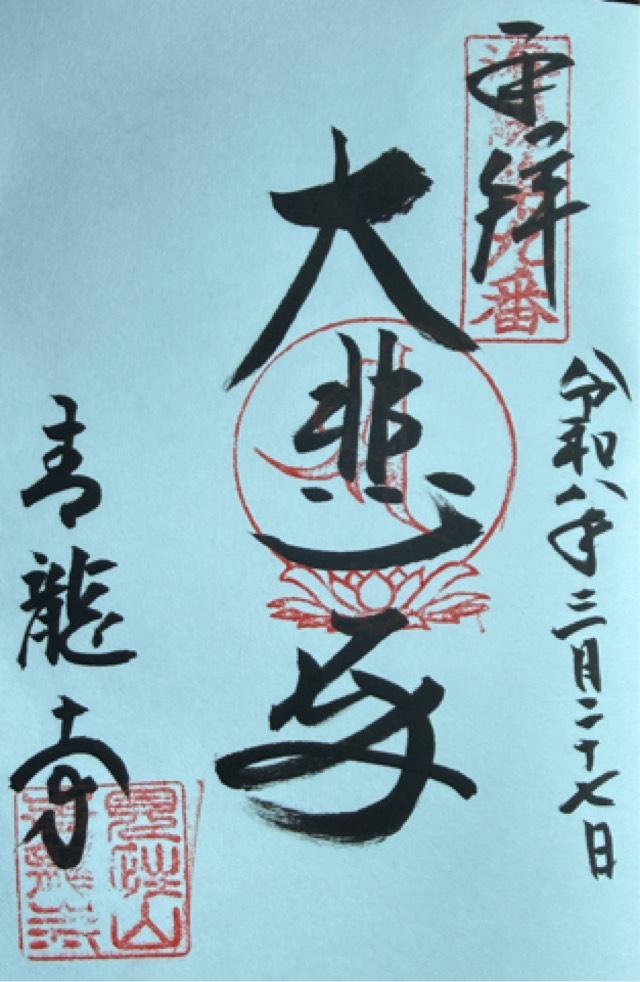 奉拝
番
令和八年三月二十七日
大悲殿
青龍寺
山